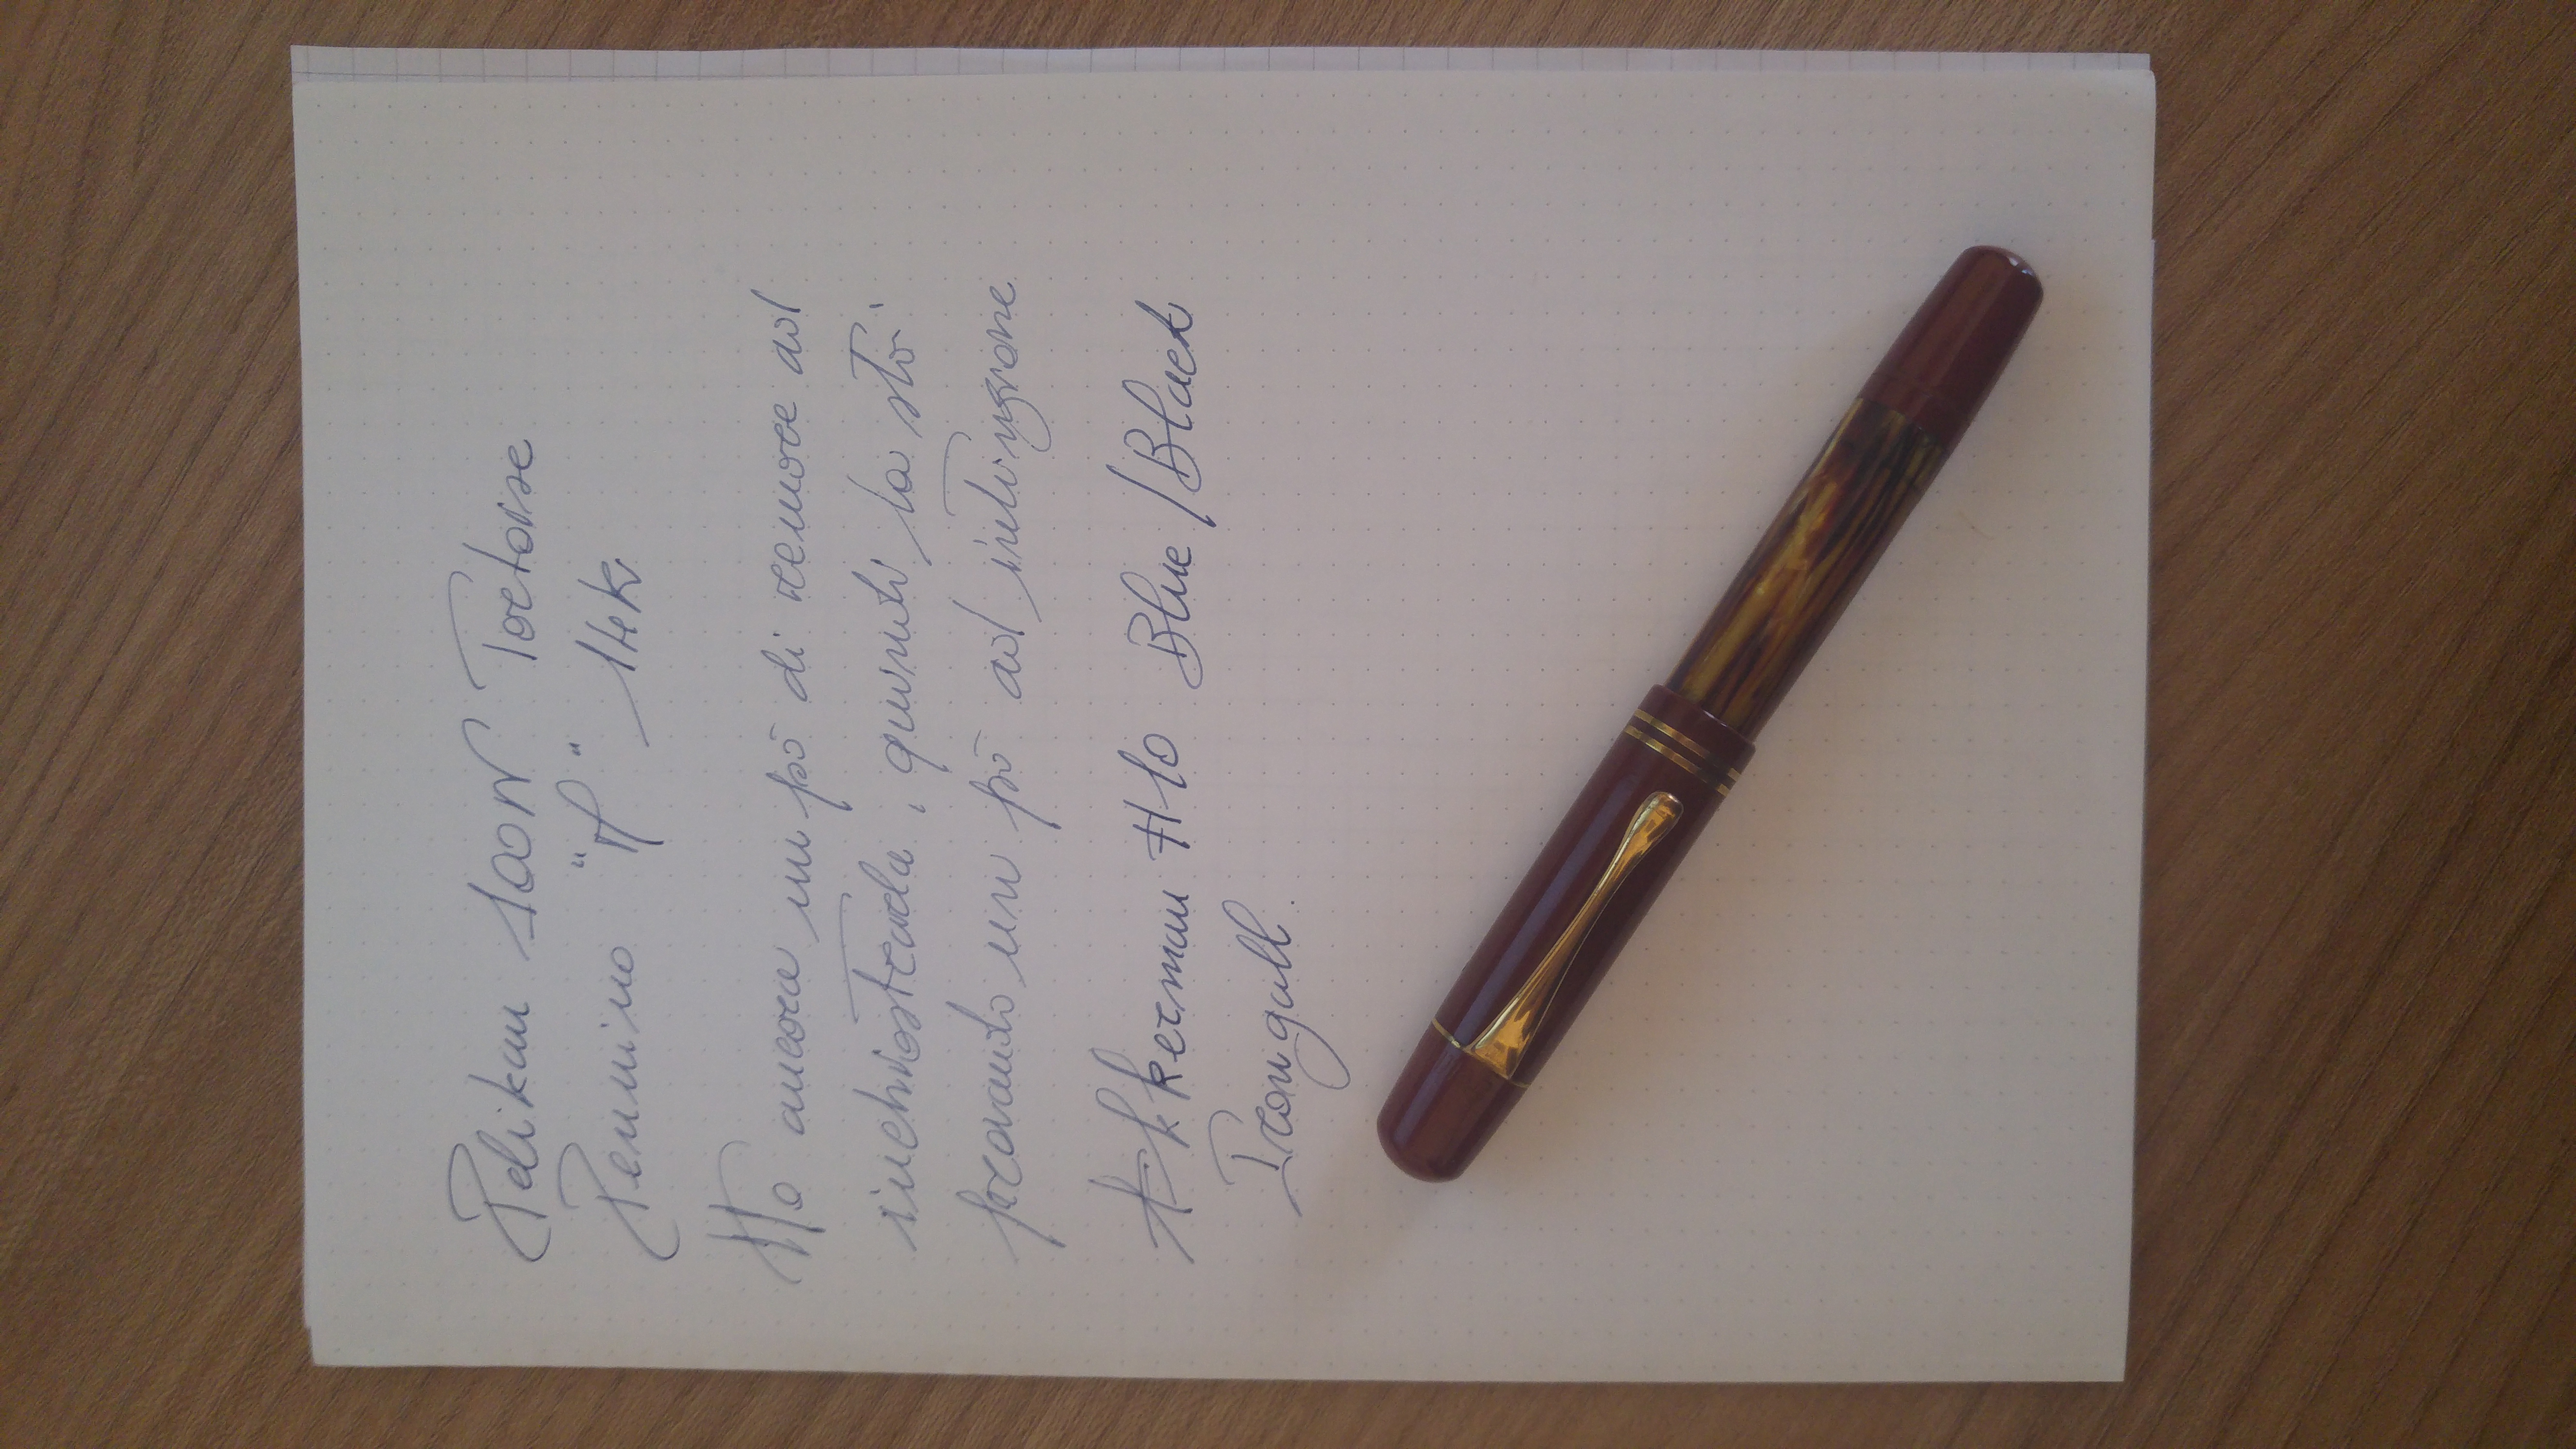 Pelikan 100N Tortoise
Pennino "F" 14k
Ho ancora un pò di remore ad
inchiostrarla, quindi la sto
provando un pò ad intinzione
Akkerman #10 Blue/Black
Irongall.